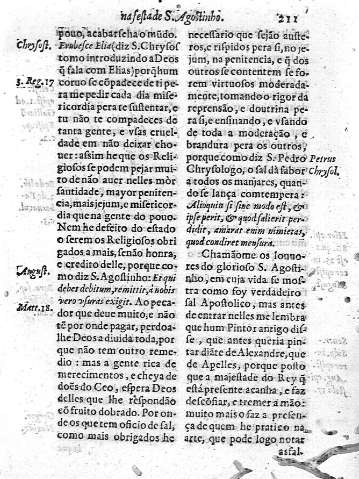 na festa de S. Agostinho. 211
pouo, acabar seha o mũdo.
Chrysost. Erubesce Elia (diz S. Chrysos
tomo introduzindo a Deos
q̃ fala com Elias) porq̃ hum
3. Reg. 17 coruo se cõpadece de ti pe
ra me pedir cada dia mise-
ricordia pera te sustentar, e
tu não te compadeces de
tanta gente, e vsas cruel-
dade em não deixar cho-
uer: assim he que os Reli-
giosos se podem pejar mui-
to de não auer nelles mòr
santidade, mayor peniten-
cia, mais jejum, e misericor
dia que na gente do pouo.
Nem he defeito do estado
o serem os Religiosos obri
gados a mais, senão honra,
e credito delle, porque co-
August. mo diz S. Agostinho: Et qui
debet debitum, remittit, à nobis
vero vsuras exigit. Ao peca-
Matt. 18. dor que deue muito, e não
tẽ por onde pagar, perdoa-
lhe Deos a diuida toda, por
que não tem outro reme-
dio: mas a gente rica de
merecimentos, e cheya de
doẽs do Ceo, espera Deos
delles que lhe respondão
cõ fruito dobrado. Por on-
de os que tem oficio de sal,
como mais obrigados he
necessario que sejão auste-
ros, e rispidos pera si, no je-
jum, na penitencia, e q̃ dos
outros se contentem se fo-
rem virtuosos moderada-
mente, tomando o rigor da
reprensão, e doutrina pe-
ra si, e ensinando, e vsando
de toda a moderação, e
brandura pera os outros,
porque como diz S. Pedro Petrus
Chrysologo, o sal dà sabor Chrysol.
a todos os manjares, quan-
do se lança com tempera:
Aloquin si sine modo est, &
ipse perit, & quod salierit per-
didit, amarat enim nimietas,
quod condiret mensura.
Chamãome os louuo-
res do glorioso S. Agosti-
nho, em cuja vida se mos-
tra como foy verdadeiro
sal Apostolico, mas antes
de entrar nelles me lembra
que hum Pintor antigo dis-
se, que antes queria pin-
tar diãte de Alexandre, que
de Apelles, porque posto
que a majestade do Rey q̃
està presente acanha, e faz
descõfiar, e tremer a mão:
muito mais o faz a presen-
ça de quem he pratico na
arte, que pode logo notar
as fal-